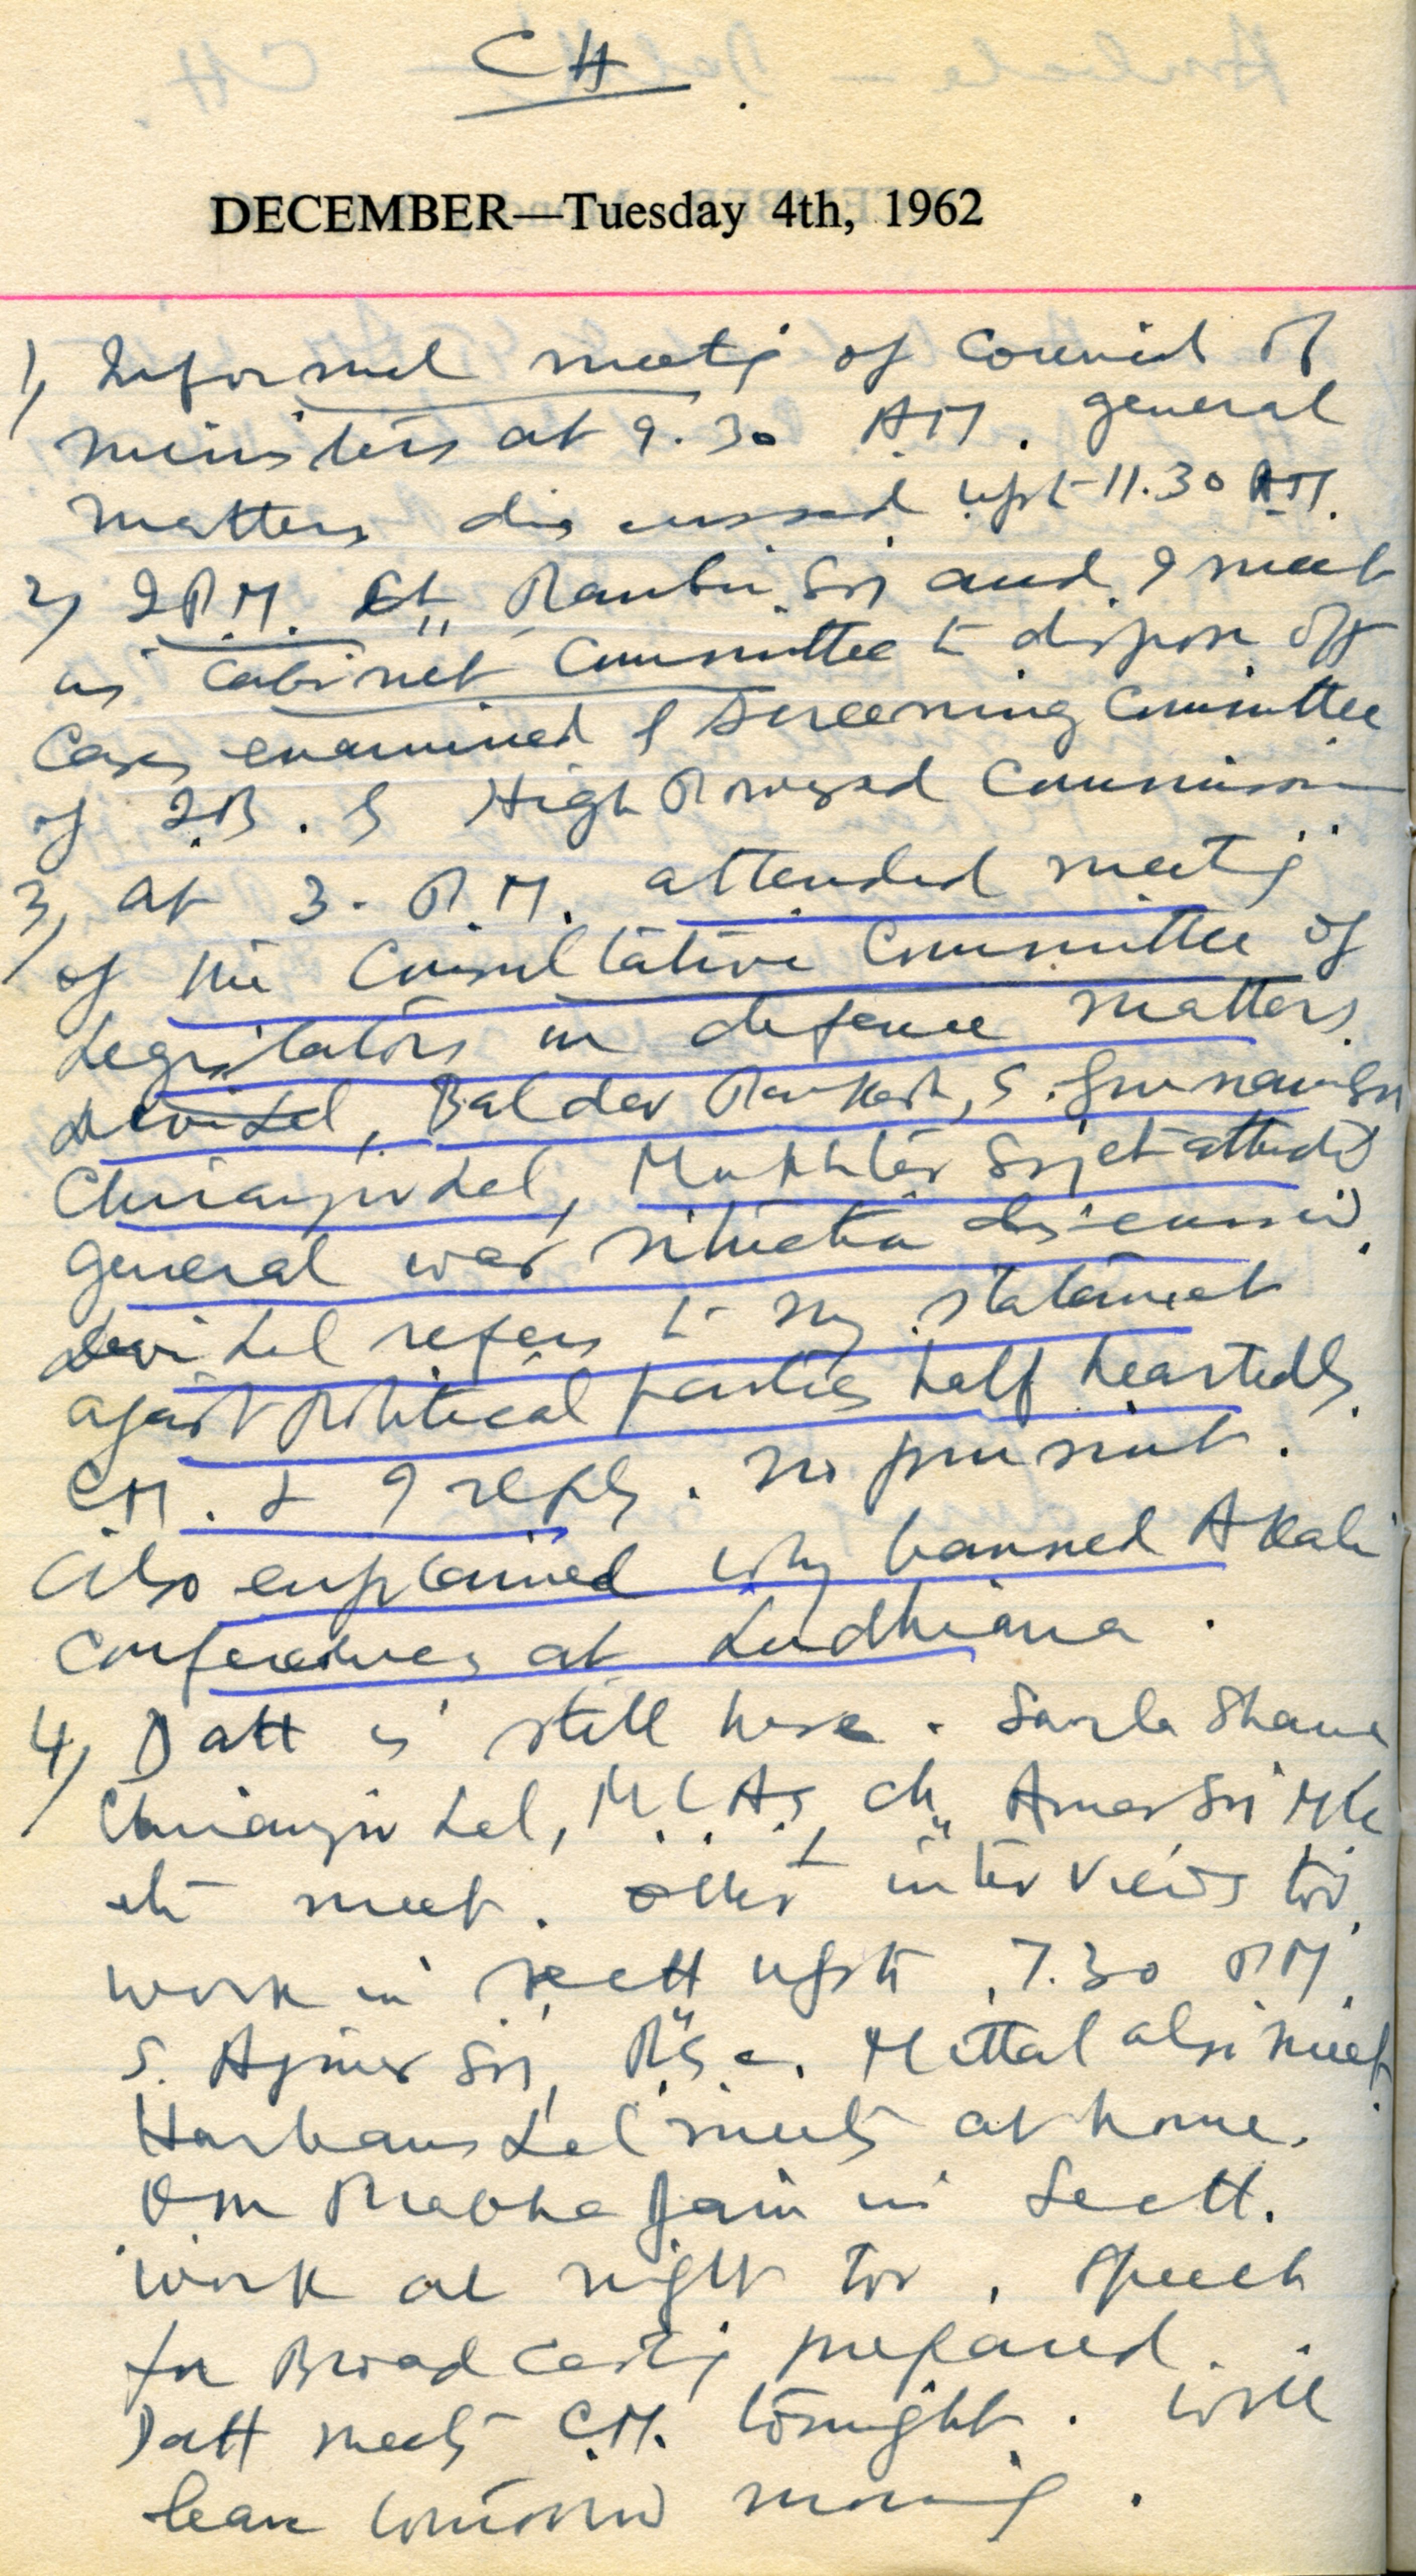 CH
DECEMBER—Tuesday 4th, 1962
1) Informal meeting of Council of
ministers at 9.30 AM. general
matters discussed upto 11.30 AM.
2) 2 P.M. Ch. Ranbir Sing and I meet
as Cabinet Committee to dispose off
Cases examined by Screening Committee
of I.B. & High Powered Commission
3) at 3. P.M. attended meeting
of the Consultative Committee of
Legislators on defence matters.
Devi Lal, Baldev Parkash, S. Gurnam Sing
Chiranjiv Lal, Mukhtar Sing etc attended
general war situation discussed.
Devi Lal refers to my statement
against political parties half heartedly.
C.M. & I reply.
Also explained why banned Akali
Conferences at Ludhiana.
4) Datt is still here. Sarla Sharma
Chiranjiv Lal, M.L.A.s, Ch. Amar Sing MLA
etc meet. other interviews too.
work in sectt upto 7.30 PM.
S. Ajmer Sing, Mittal also meet.
Harbans Lal meets at home.
Om Prabha Jain in Sectt.
work at night too. Speech
for Broadcasting prepared.
Datt meets C.M. tonight. will
leave tomorrow morning.